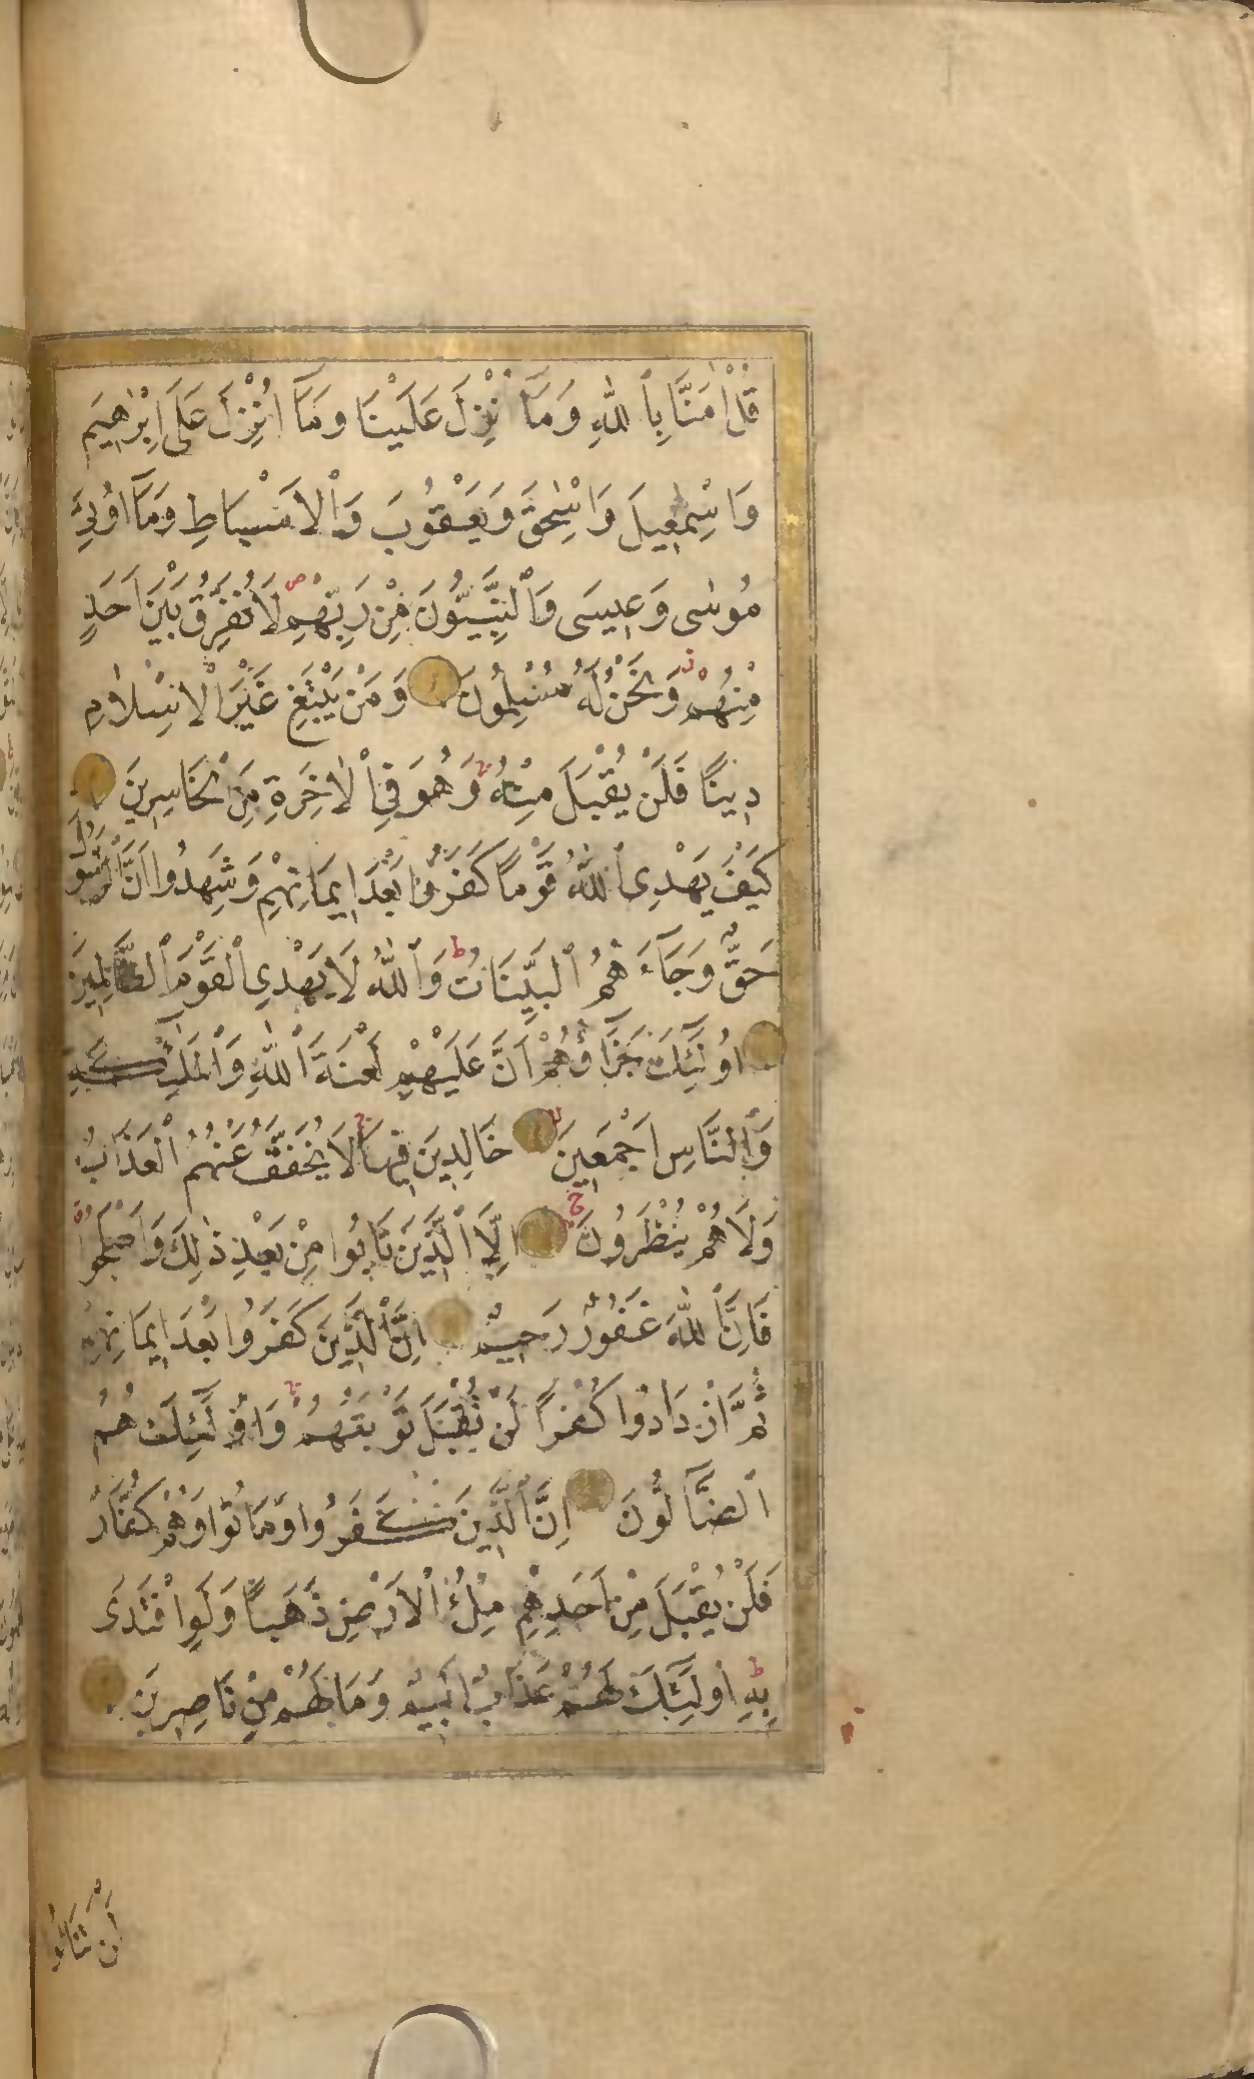 قُلْ اٰمَنَّا بِاللّٰهِ وَمَٓا اُنْزِلَ عَلَيْنَا وَمَٓا اُنْزِلَ عَلٰٓى اِبْرٰهٖيمَ
وَاِسْمٰعٖيلَ وَاِسْحٰقَ وَيَعْقُوبَ وَالْاَسْبَاطِ وَمَٓا اُوتِيَ
مُوسٰى وَعٖيسٰى وَالنَّبِيُّونَ مِنْ رَبِّهِمْ ص لَا نُفَرِّقُ بَيْنَ اَحَدٍ
مِنْهُمْ ز وَنَحْنُ لَهُ مُسْلِمُونَ وَمَنْ يَبْتَغِ غَيْرَ الْاِسْلَامِ
دٖينًا فَلَنْ يُقْبَلَ مِنْهُ ج وَهُوَ فِي الْاٰخِرَةِ مِنَ الْخَاسِرٖينَ
كَيْفَ يَهْدِي اللّٰهُ قَوْمًا كَفَرُوا بَعْدَ اٖيمَانِهِمْ وَشَهِدُٓوا اَنَّ الرَّسُولَ
حَقٌّ وَجَٓاءَهُمُ الْبَيِّنَاتُ ط وَاللّٰهُ لَا يَهْدِي الْقَوْمَ الظَّالِمٖينَ
اُولٰٓئِكَ جَزَٓاؤُهُمْ اَنَّ عَلَيْهِمْ لَعْنَةَ اللّٰهِ وَالْمَلٰٓئِكَةِ
وَالنَّاسِ اَجْمَعٖينَ لا خَالِدٖينَ فٖيهَا ج لَا يُخَفَّفُ عَنْهُمُ الْعَذَابُ
وَلَا هُمْ يُنْظَرُونَ اِلَّا الَّذٖينَ تَابُوا مِنْ بَعْدِ ذٰلِكَ وَاَصْلَحُوا
فَاِنَّ اللّٰهَ غَفُورٌ رَحٖيمٌ اِنَّ الَّذٖينَ كَفَرُوا بَعْدَ اٖيمَانِهِمْ
ثُمَّ ازْدَادُوا كُفْرًا لَنْ تُقْبَلَ تَوْبَتُهُمْ ج وَاُولٰٓئِكَ هُمُ
الضَّٓالُّونَ اِنَّ الَّذٖينَ كَفَرُوا وَمَاتُوا وَهُمْ كُفَّارٌ
فَلَنْ يُقْبَلَ مِنْ اَحَدِهِمْ مِلْءُ الْاَرْضِ ذَهَبًا وَلَوِ افْتَدٰى
بِهٖ ط اُولٰٓئِكَ لَهُمْ عَذَابٌ اَلٖيمٌ وَمَا لَهُمْ مِنْ نَاصِرٖينَ
لَنْ تَنَالُوا